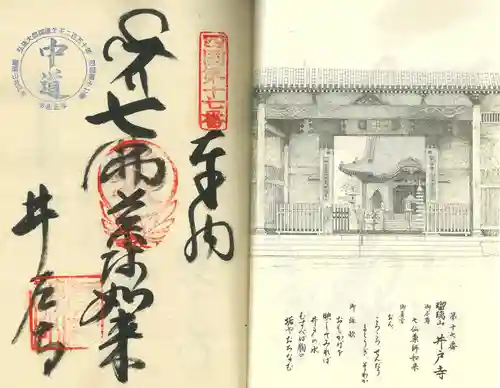 四國第十七番
奉納
七佛薬師如来
井戸寺
中道
第十七番
瑠璃山 井戸寺
御本尊
七仏薬師如来
御真言
おん
ころころ せんだり
まとうぎ そわか
御詠歌
おもかげを
映してみれば
井戸の水
むすべば胸の
垢やおちなむ